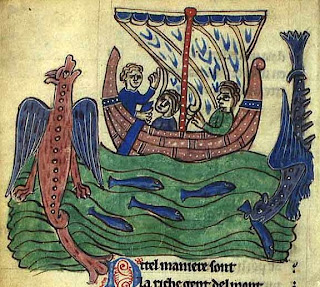 Ditel maniere sont
la riche gent del mont